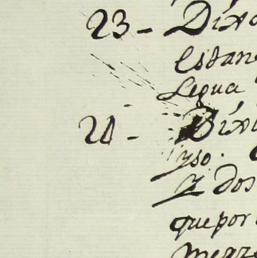 23 - Dixo
estan
Legua
24 - Dixo
yso.
y dos
que por